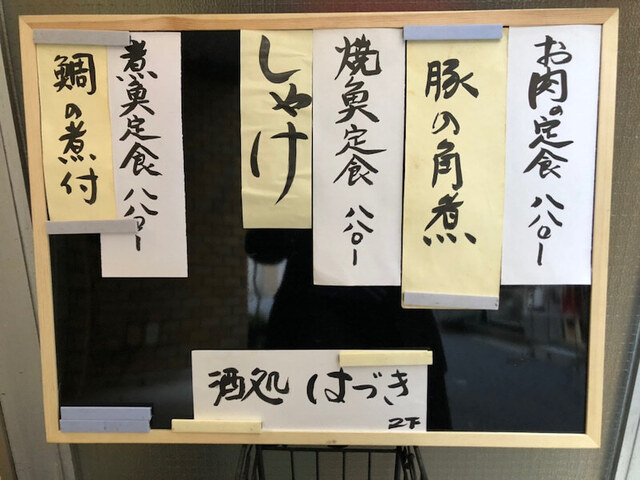 お肉の定食 八八〇ー
豚の角煮
焼魚定食 八八〇ー
しゃけ
煮魚定食 八八〇ー
鯛の煮付
酒処 はづき
2F